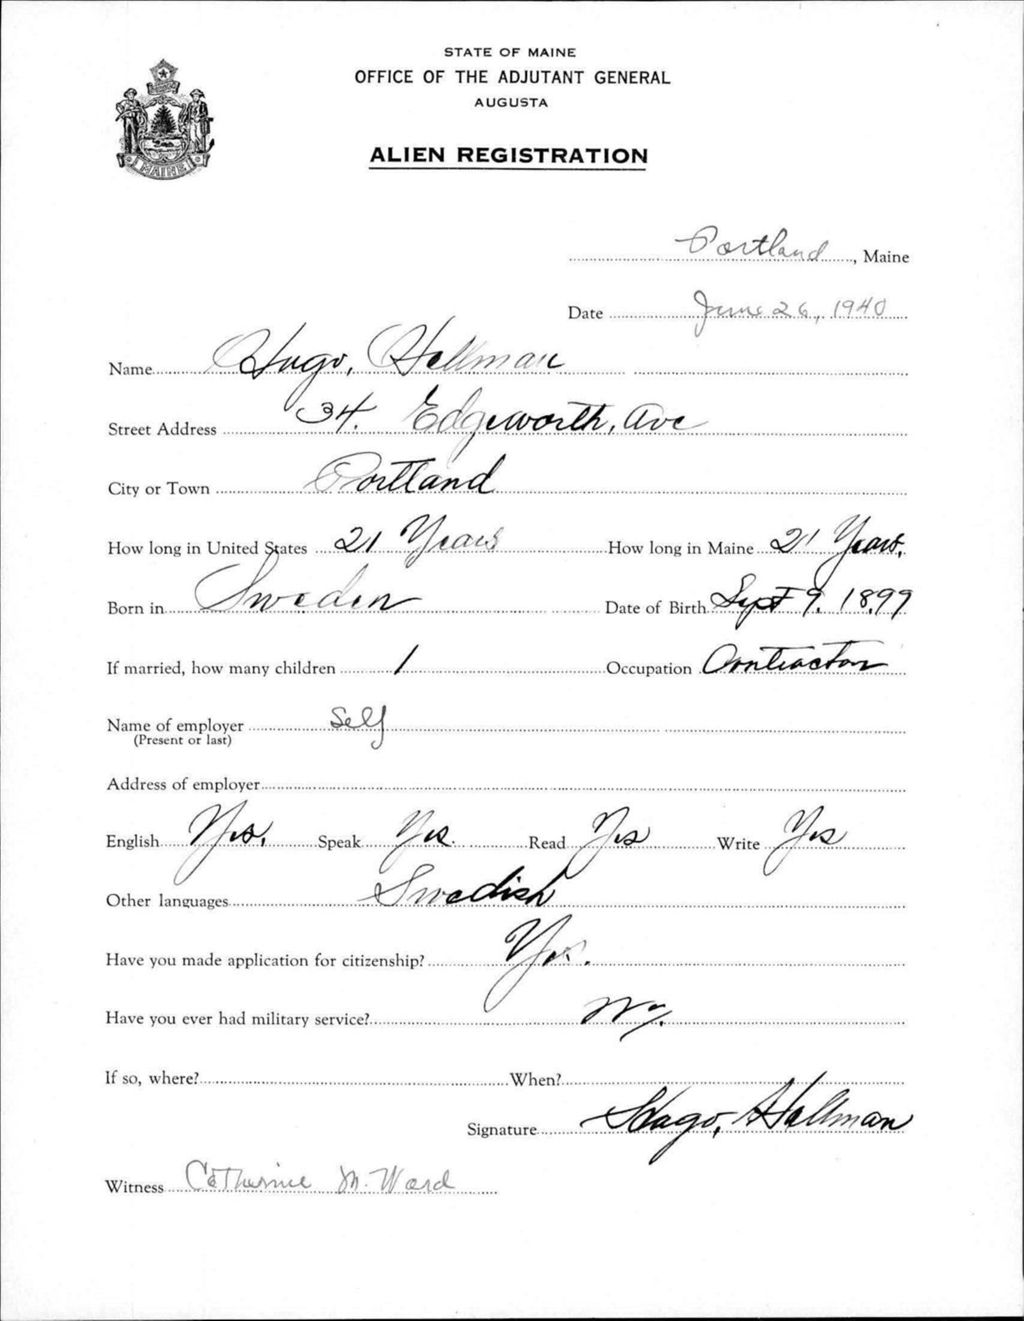 STATE OF MAINE
OFFICE OF THE ADJUTANT GENERAL
AUGUSTA
ALIEN REGISTRATION
MAINE
Portland, Maine
Date June 26, 1940
Name Hugo, Hellman
Street Address 34. Edgeworth, Ave
City or Town Portland
How long in United States 21 Years How long in Maine 21 Years.
Born in Sweden Date of Birth Sept 9. 1899
If married, how many children 1 Occupation Contractor
Name of employer Self
(Present or last)
Address of employer
English Yes. Speak Yes. Read Yes Write Yes
Other languages Swedish
Have you made application for citizenship? Yes.
Have you ever had military service? No.
If so, where? When?
Signature Hugo, Hellman
Witness Catherine M. Ward